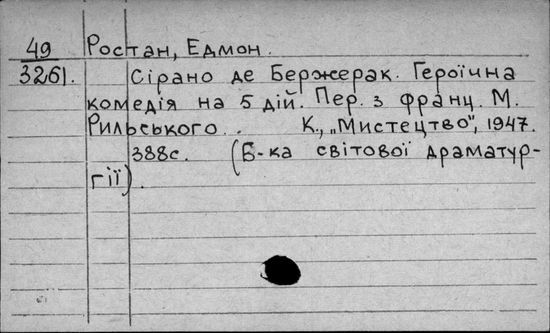 49 Ростан, Едмон.
3261. Сірано де Бержерак. Героїчна
комедія на 5 дій. Пер. з франц. М.
Рильського.. К., „Мистецтво", 1947.
388с. (Б-ка світової драматур-
гії).